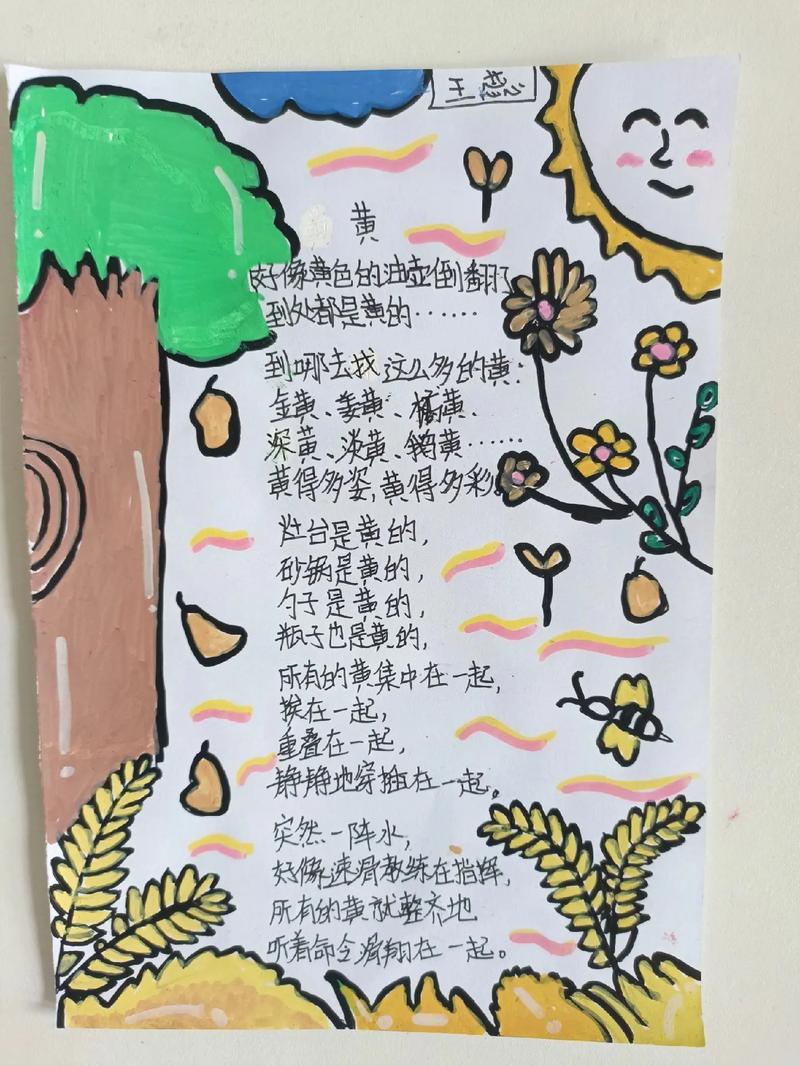 黄
好像黄色的油壶倒翻了
到处都是黄的……
到哪去找这么多的黄:
金黄、姜黄、橘黄、
深黄、淡黄、鹅黄……
黄得多姿,黄得多彩。
灶台是黄的,
砂锅是黄的,
勺子是黄的,
瓶子也是黄的,
所有的黄集中在一起,
挨在一起,
重叠在一起,
静静地穿插在一起。
突然一阵水,
好像速滑教练在指挥,
所有的黄就整齐地
听着命令滑翔在一起。